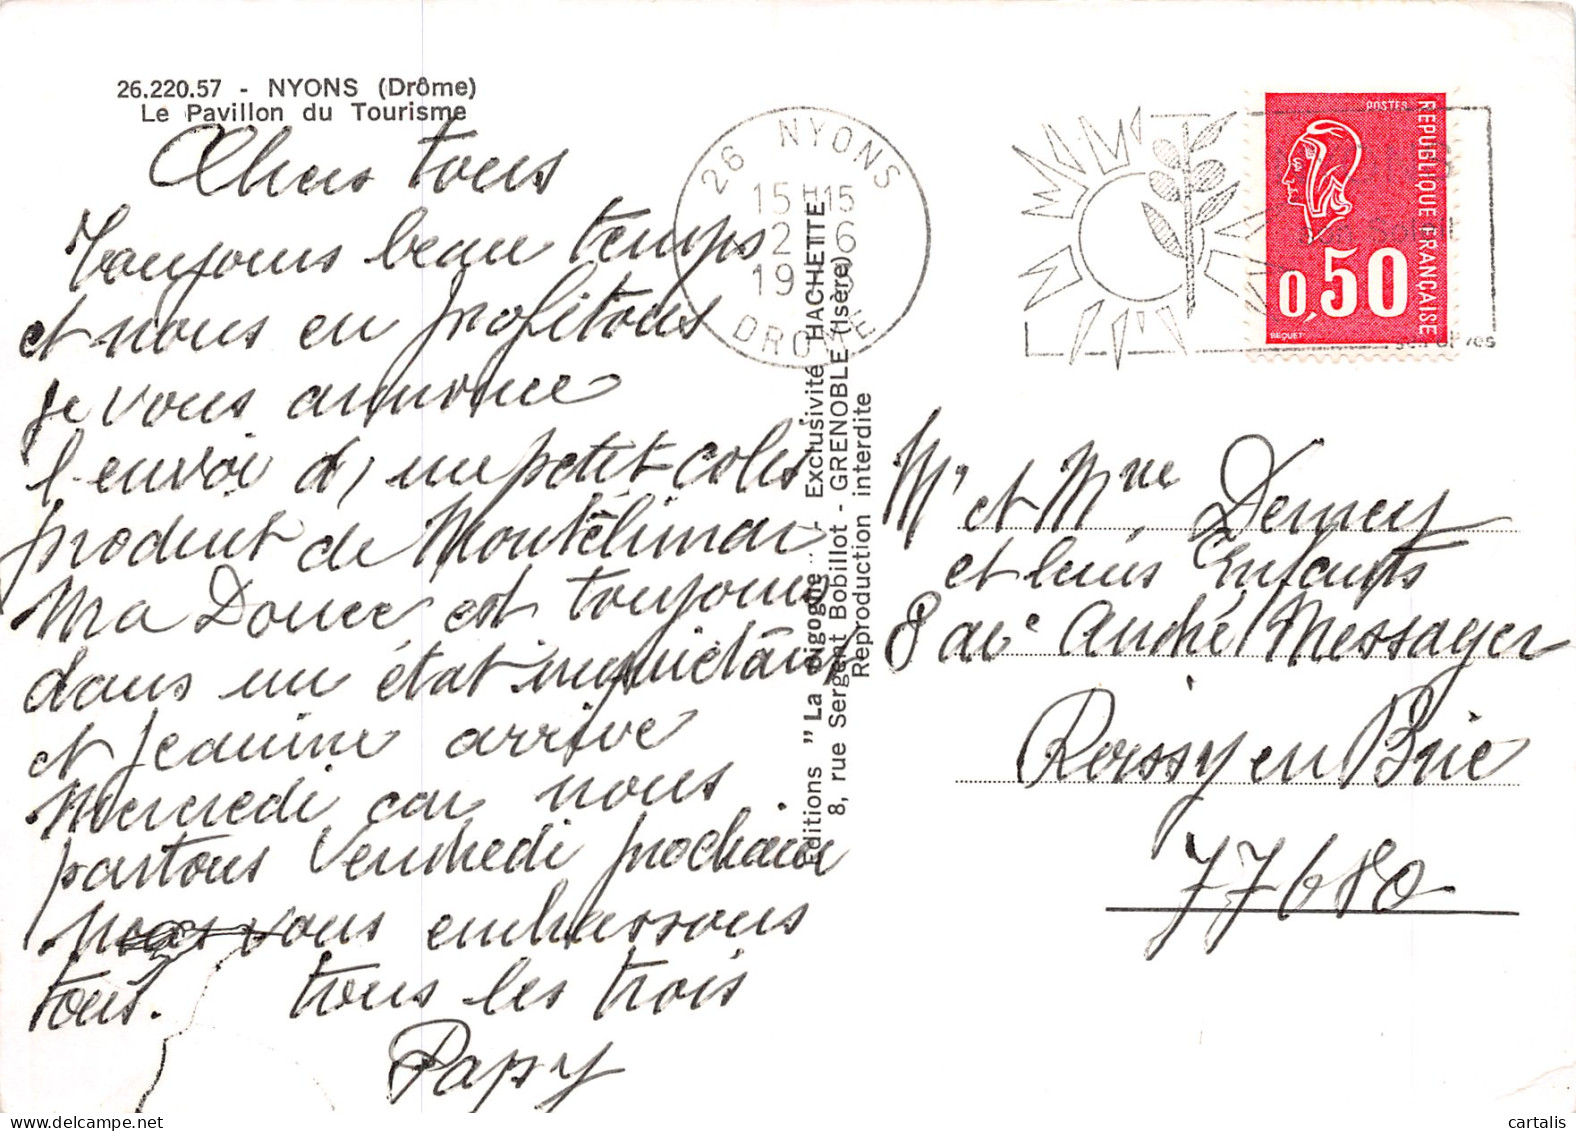 26.220.57 - NYONS (Drôme)
Le Pavillon du Tourisme
Chers tous
Toujours beau temps
et nous en profitons
je vous annonce
l'envoi d, un petit colis
produit de Montélimar
Ma Douce est toujours
dans un état inquiétant
et Jeanine arrive
Mercredi car nous
partons Vendredi prochain
nous vous embrassons
tous. tous les trois
Papy
26 NYONS
15H15
2 6
19
DROME
Editions "La Cigogne" - Exclusivité HACHETTE
8, rue Sergent Bobillot - GRENOBLE (Isère)
Reproduction interdite
POSTES
REPUBLIQUE FRANÇAISE
0,50
BEQUET
son Soleil
Mr et Mme
et leurs Enfants
8 ave André Messager
Roissy en Brie
77680
cartalis